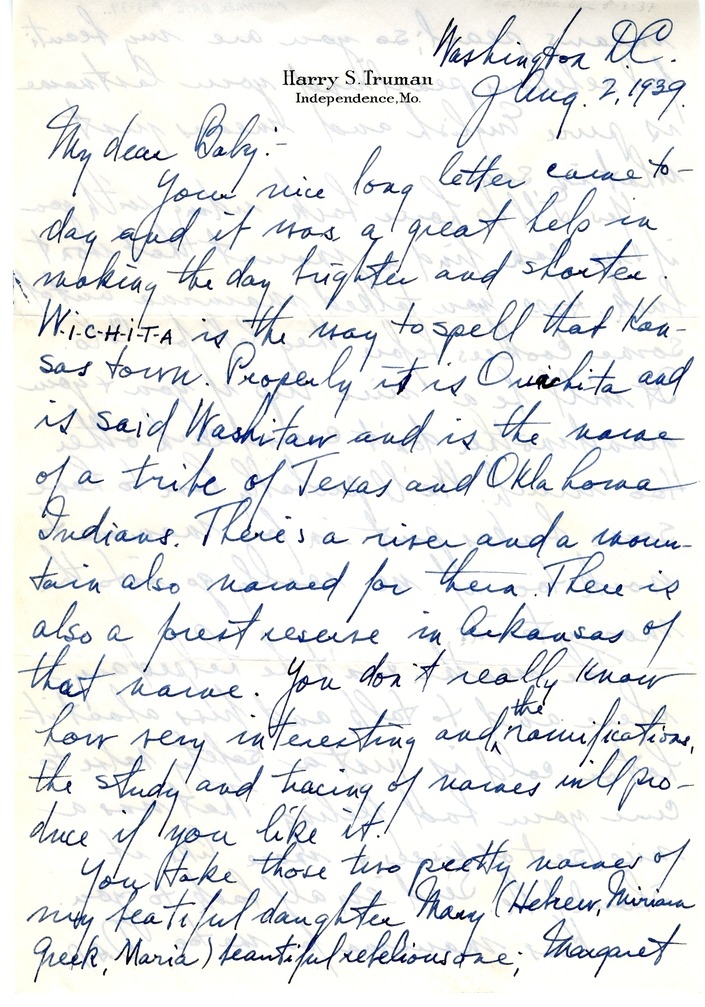 Washington D.C.
Harry S. Truman
Independence, Mo.
Aug. 2, 1939.
My dear Baby:-
Your nice long letter came to-
day and it was a great help in
making the day brighter and shorter.
W-I-C-H-I-T-A is the way to spell that Kan-
sas town. Properly it is Ouichita and
is said Washitaw and is the name
of a tribe of Texas and Oklahoma
Indians. There's a river and a moun-
tain also named for them. There is
also a forest reserve in Arkansas of
that name. You don't really know
how very interesting and the ramifications,
the study and tracing of names will pro-
duce if you like it.
You take those two pretty names of
my beatiful daughter Mary (Hebrew, Miriam
Greek, Maria) beautiful rebelious one; Margaret